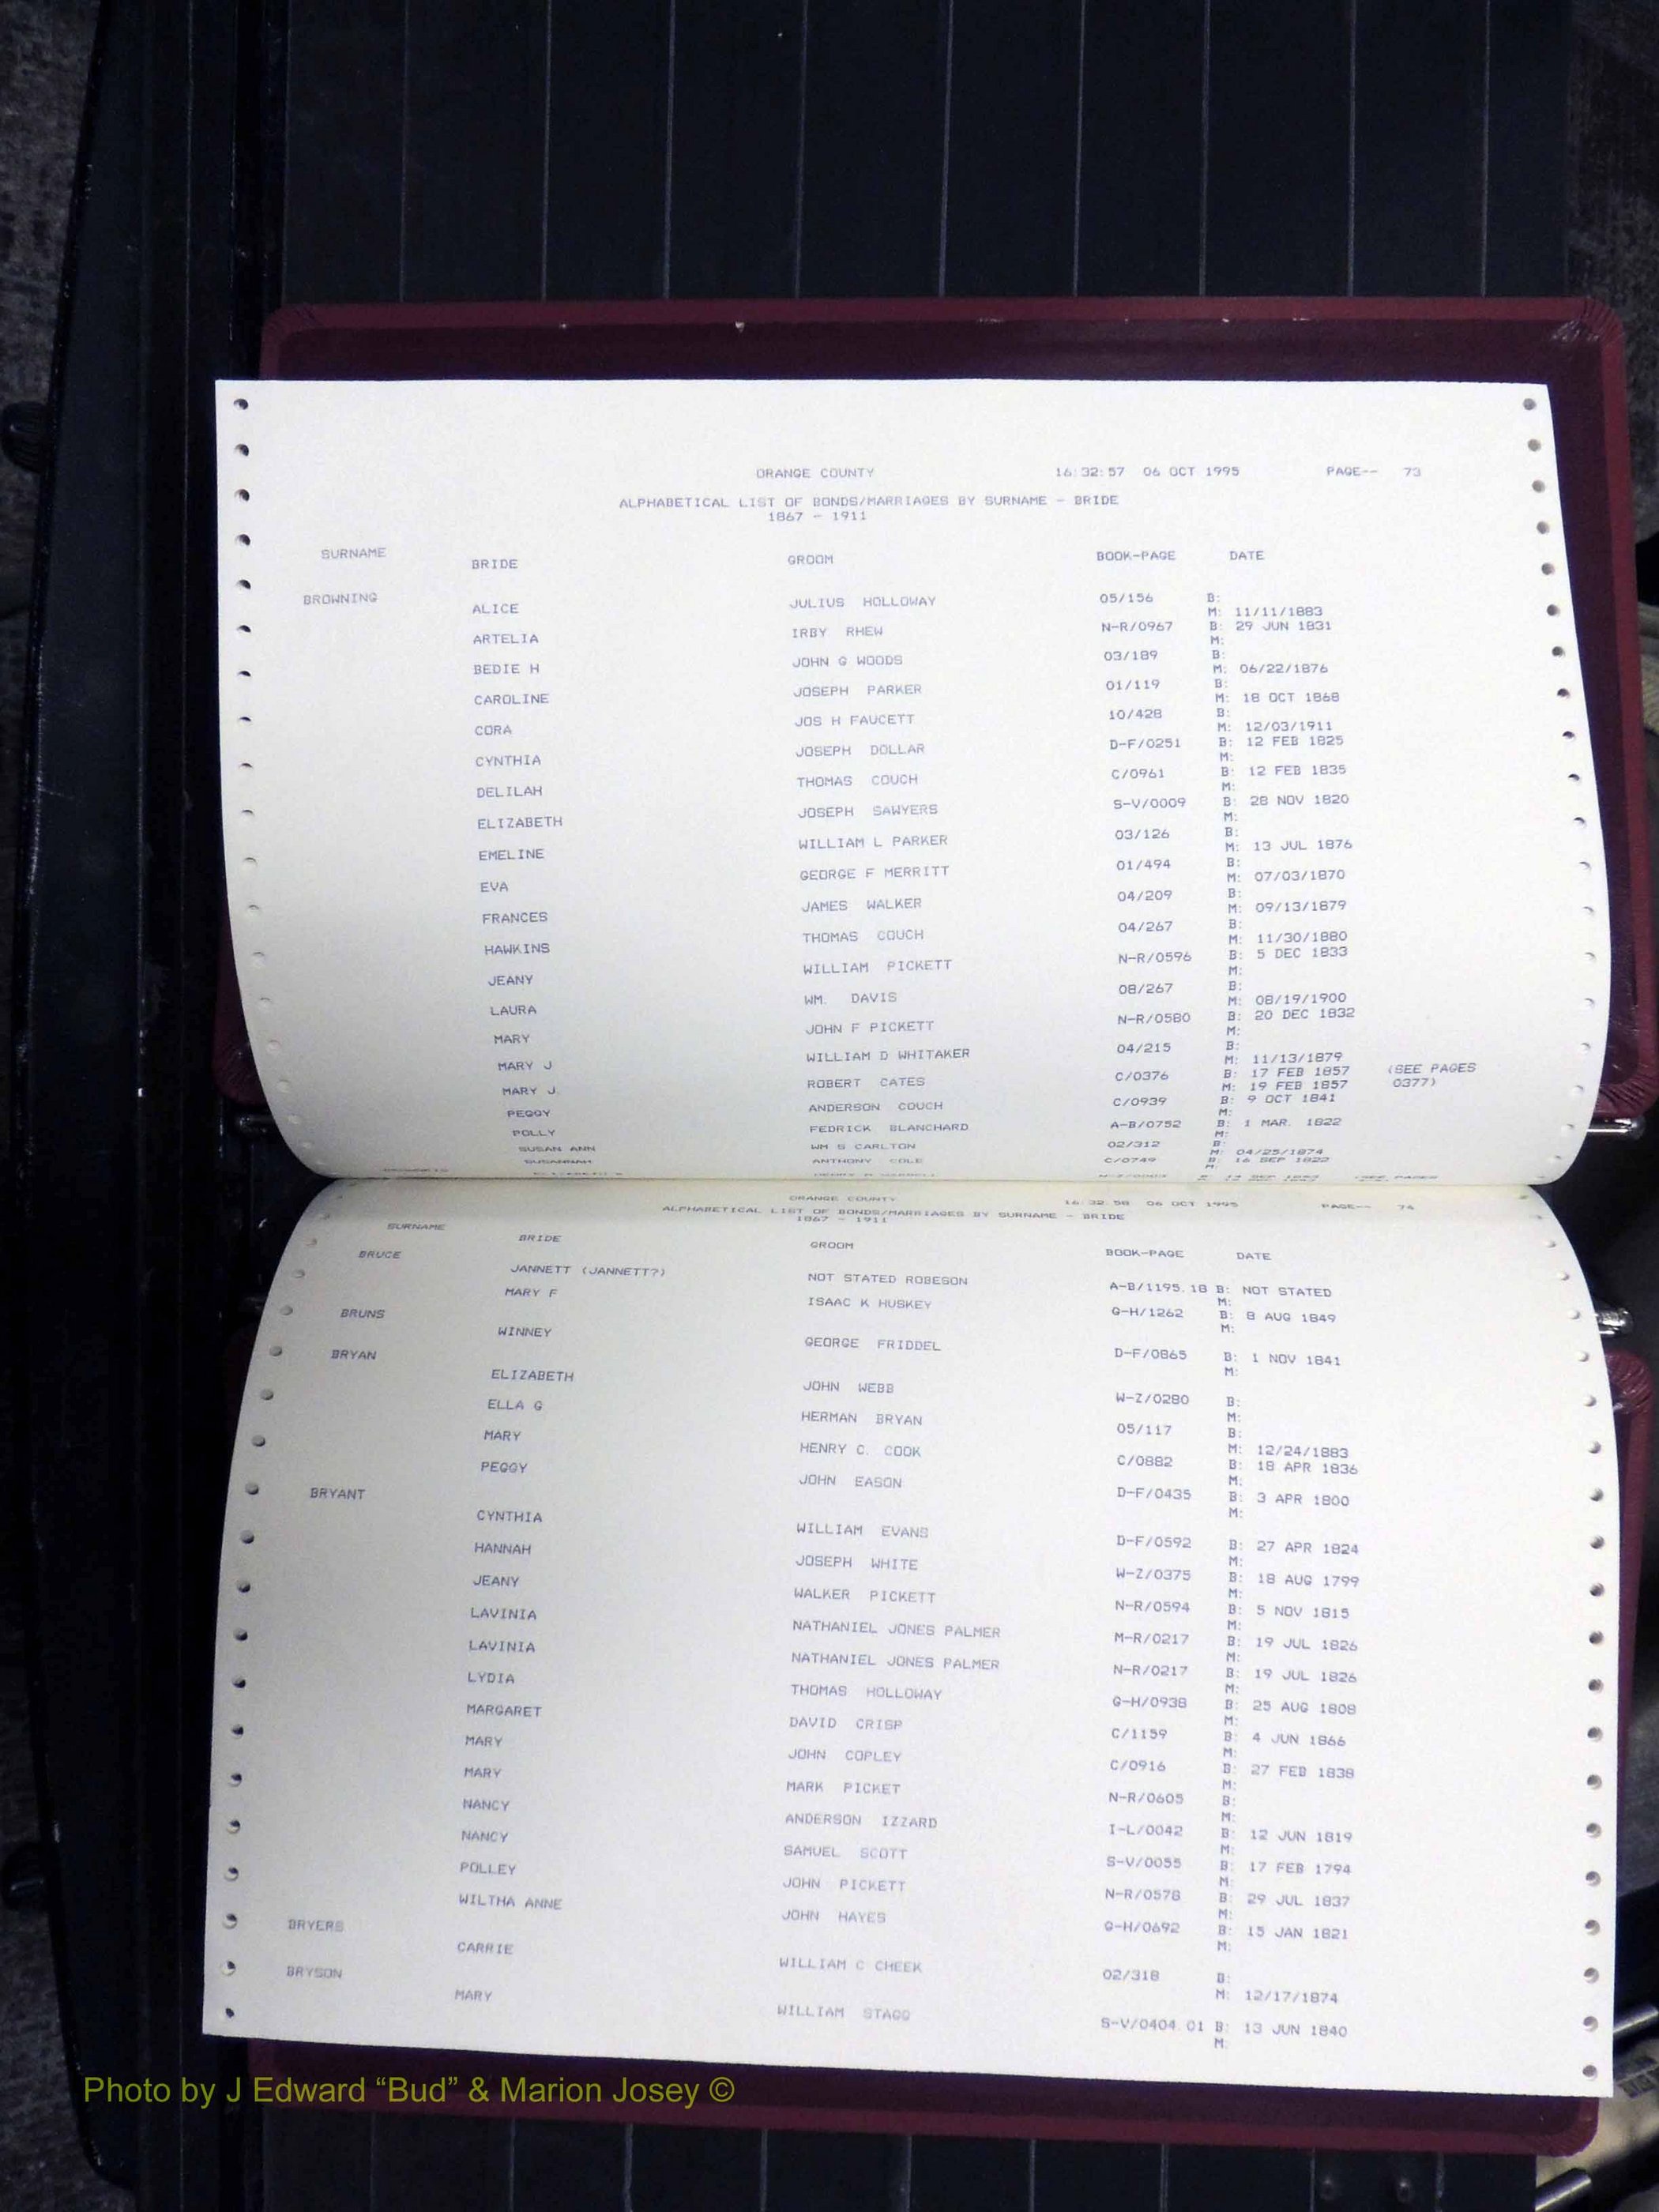 ORANGE COUNTY 16:32:57 06 OCT 1995 PAGE-- 73
ALPHABETICAL LIST OF BONDS/MARRIAGES BY SURNAME - BRIDE
1867 - 1911
SURNAME BRIDE GROOM BOOK-PAGE DATE
BROWNING
ALICE JULIUS HOLLOWAY 05/156 B:
M: 11/11/1883
ARTELIA IRBY RHEW N-R/0967 B: 29 JUN 1831
M:
BEDIE H JOHN G WOODS 03/189 B:
M: 06/22/1876
CAROLINE JOSEPH PARKER 01/119 B:
M: 18 OCT 1868
CORA JOS H FAUCETT 10/428 B:
M: 12/03/1911
CYNTHIA JOSEPH DOLLAR D-F/0251 B: 12 FEB 1825
M:
DELILAH THOMAS COUCH C/0961 B: 12 FEB 1835
M:
ELIZABETH JOSEPH SAWYERS S-V/0009 B: 28 NOV 1820
M:
EMELINE WILLIAM L PARKER 03/126 B:
M: 13 JUL 1876
EVA GEORGE F MERRITT 01/494 B:
M: 07/03/1870
FRANCES JAMES WALKER 04/209 B:
M: 09/13/1879
HAWKINS THOMAS COUCH 04/267 B:
M: 11/30/1880
JEANY WILLIAM PICKETT N-R/0596 B: 5 DEC 1833
M:
LAURA WM. DAVIS 08/267 B:
M: 08/19/1900
MARY JOHN F PICKETT N-R/0580 B: 20 DEC 1832
M:
MARY J WILLIAM D WHITAKER 04/215 B:
M: 11/13/1879
MARY J. ROBERT CATES C/0376 B: 17 FEB 1857 (SEE PAGES
M: 19 FEB 1857 0377)
PEGGY ANDERSON COUCH C/0939 B: 9 OCT 1841
M:
POLLY FEDRICK BLANCHARD A-B/0752 B: 1 MAR. 1822
M:
SUSAN ANN WM S CARLTON 02/312 B:
M: 04/25/1874
SUSANNAH ANTHONY COLE C/0749 B: 16 SEP 1822
M:
ORANGE COUNTY 16:32:58 06 OCT 1995 PAGE-- 74
ALPHABETICAL LIST OF BONDS/MARRIAGES BY SURNAME - BRIDE
1867 - 1911
SURNAME BRIDE GROOM BOOK-PAGE DATE
BRUCE
JANNETT (JANNETT?) NOT STATED ROBESON A-B/1195.18 B: NOT STATED
M:
MARY F ISAAC K HUSKEY G-H/1262 B: 8 AUG 1849
M:
BRUNS
WINNEY GEORGE FRIDDEL D-F/0865 B: 1 NOV 1841
M:
BRYAN
ELIZABETH JOHN WEBB W-Z/0280 B:
M:
ELLA G HERMAN BRYAN 05/117 B:
M: 12/24/1883
MARY HENRY C. COOK C/0882 B: 18 APR 1836
M:
PEGGY JOHN EASON D-F/0435 B: 3 APR 1800
M:
BRYANT
CYNTHIA WILLIAM EVANS D-F/0592 B: 27 APR 1824
M:
HANNAH JOSEPH WHITE W-Z/0375 B: 18 AUG 1799
M:
JEANY WALKER PICKETT N-R/0594 B: 5 NOV 1815
M:
LAVINIA NATHANIEL JONES PALMER M-R/0217 B: 19 JUL 1826
M:
LAVINIA NATHANIEL JONES PALMER N-R/0217 B: 19 JUL 1826
M:
LYDIA THOMAS HOLLOWAY G-H/0938 B: 25 AUG 1808
M:
MARGARET DAVID CRISP C/1159 B: 4 JUN 1866
M:
MARY JOHN COPLEY C/0916 B: 27 FEB 1838
M:
MARY MARK PICKET N-R/0605 B:
M:
NANCY ANDERSON IZZARD I-L/0042 B: 12 JUN 1819
M:
NANCY SAMUEL SCOTT S-V/0055 B: 17 FEB 1794
M:
POLLEY JOHN PICKETT N-R/0578 B: 29 JUL 1837
M:
WILTHA ANNE JOHN HAYES G-H/0692 B: 15 JAN 1821
M:
BRYERS
CARRIE WILLIAM C CHEEK 02/318 B:
M: 12/17/1874
BRYSON
MARY WILLIAM STAGG S-V/0404.01 B: 13 JUN 1840
M:
Photo by J Edward “Bud” & Marion Josey ©